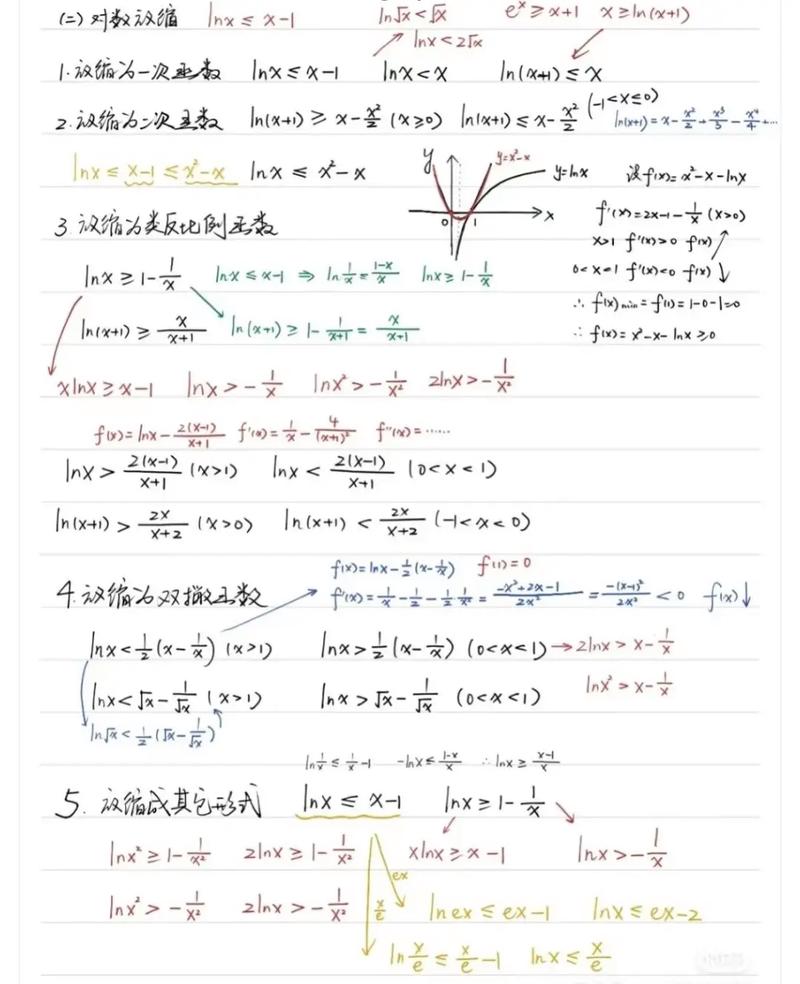 (二) 对数放缩 lnx ≤ x-1 ln√x < √x e^x ≥ x+1 x ≥ ln(x+1)
lnx < 2√x
1. 放缩为一次函数 lnx ≤ x-1 lnx < x ln(x+1) ≤ x
2. 放缩为二次函数 ln(x+1) ≥ x - x²/2 (x≥0) ln(x+1) ≤ x - x²/2 (-1<x≤0) ln(x+1) = x - x²/2 + x³/3 - x⁴/4 + ...
lnx ≤ x-1 ≤ x²-x lnx ≤ x²-x y y=x²-x y=lnx 0 1 x 设f(x)=x²-x-lnx
f'(x)=2x-1-1/x (x>0)
x>1 f'(x)>0 f(x)↗
3. 放缩为类反比例函数
lnx ≥ 1-1/x lnx ≤ x-1 ⇒ ln1/x = (1-x)/x lnx ≥ 1-1/x 0<x<1 f'(x)<0 f(x)↓
∴ f(x)min = f(1) = 1-0-1=0
ln(x+1) ≥ x/(x+1) ln(x+1) ≥ 1-1/(x+1) = x/(x+1) ∴ f(x)=x²-x-lnx ≥0
xlnx ≥ x-1 lnx > -1/x lnx² > -1/x² 2lnx > -1/x²
f(x)=lnx - 2(x-1)/(x+1) f'(x)=1/x - 4/(x+1)² f''(x)=......
lnx > 2(x-1)/(x+1) (x>1) lnx < 2(x-1)/(x+1) (0<x<1)
ln(x+1) > 2x/(x+2) (x>0) ln(x+1) < 2x/(x+2) (-1<x<0)
f(x)=lnx-1/2(x-1/x) f(1)=0
4. 放缩为双撇函数 f'(x)=1/x-1/2-1/2·1/x² = (-x²+2x-1)/2x² = -(x-1)²/2x² <0 f(x)↓
lnx < 1/2(x-1/x) (x>1) lnx > 1/2(x-1/x) (0<x<1) → 2lnx > x-1/x
lnx < √x - 1/√x (x>1) lnx > √x - 1/√x (0<x<1) lnx² > x-1/x
ln√x < 1/2(√x-1/√x)
ln1/x ≤ 1/x-1 -lnx ≤ (1-x)/x ∴ lnx ≥ (x-1)/x
5. 放缩成其它形式 lnx ≤ x-1 lnx ≥ 1-1/x
lnx² ≥ 1-1/x² 2lnx ≥ 1-1/x² xlnx ≥ x-1 lnx > -1/x
ex
lnx² > -1/x² 2lnx > -1/x² x/e lnex ≤ ex-1 lnx ≤ ex-2
ln x/e ≤ x/e -1 lnx ≤ x/e